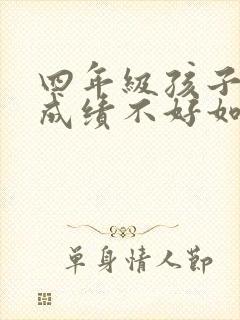 四年级孩子
成绩不好如
单身情人节